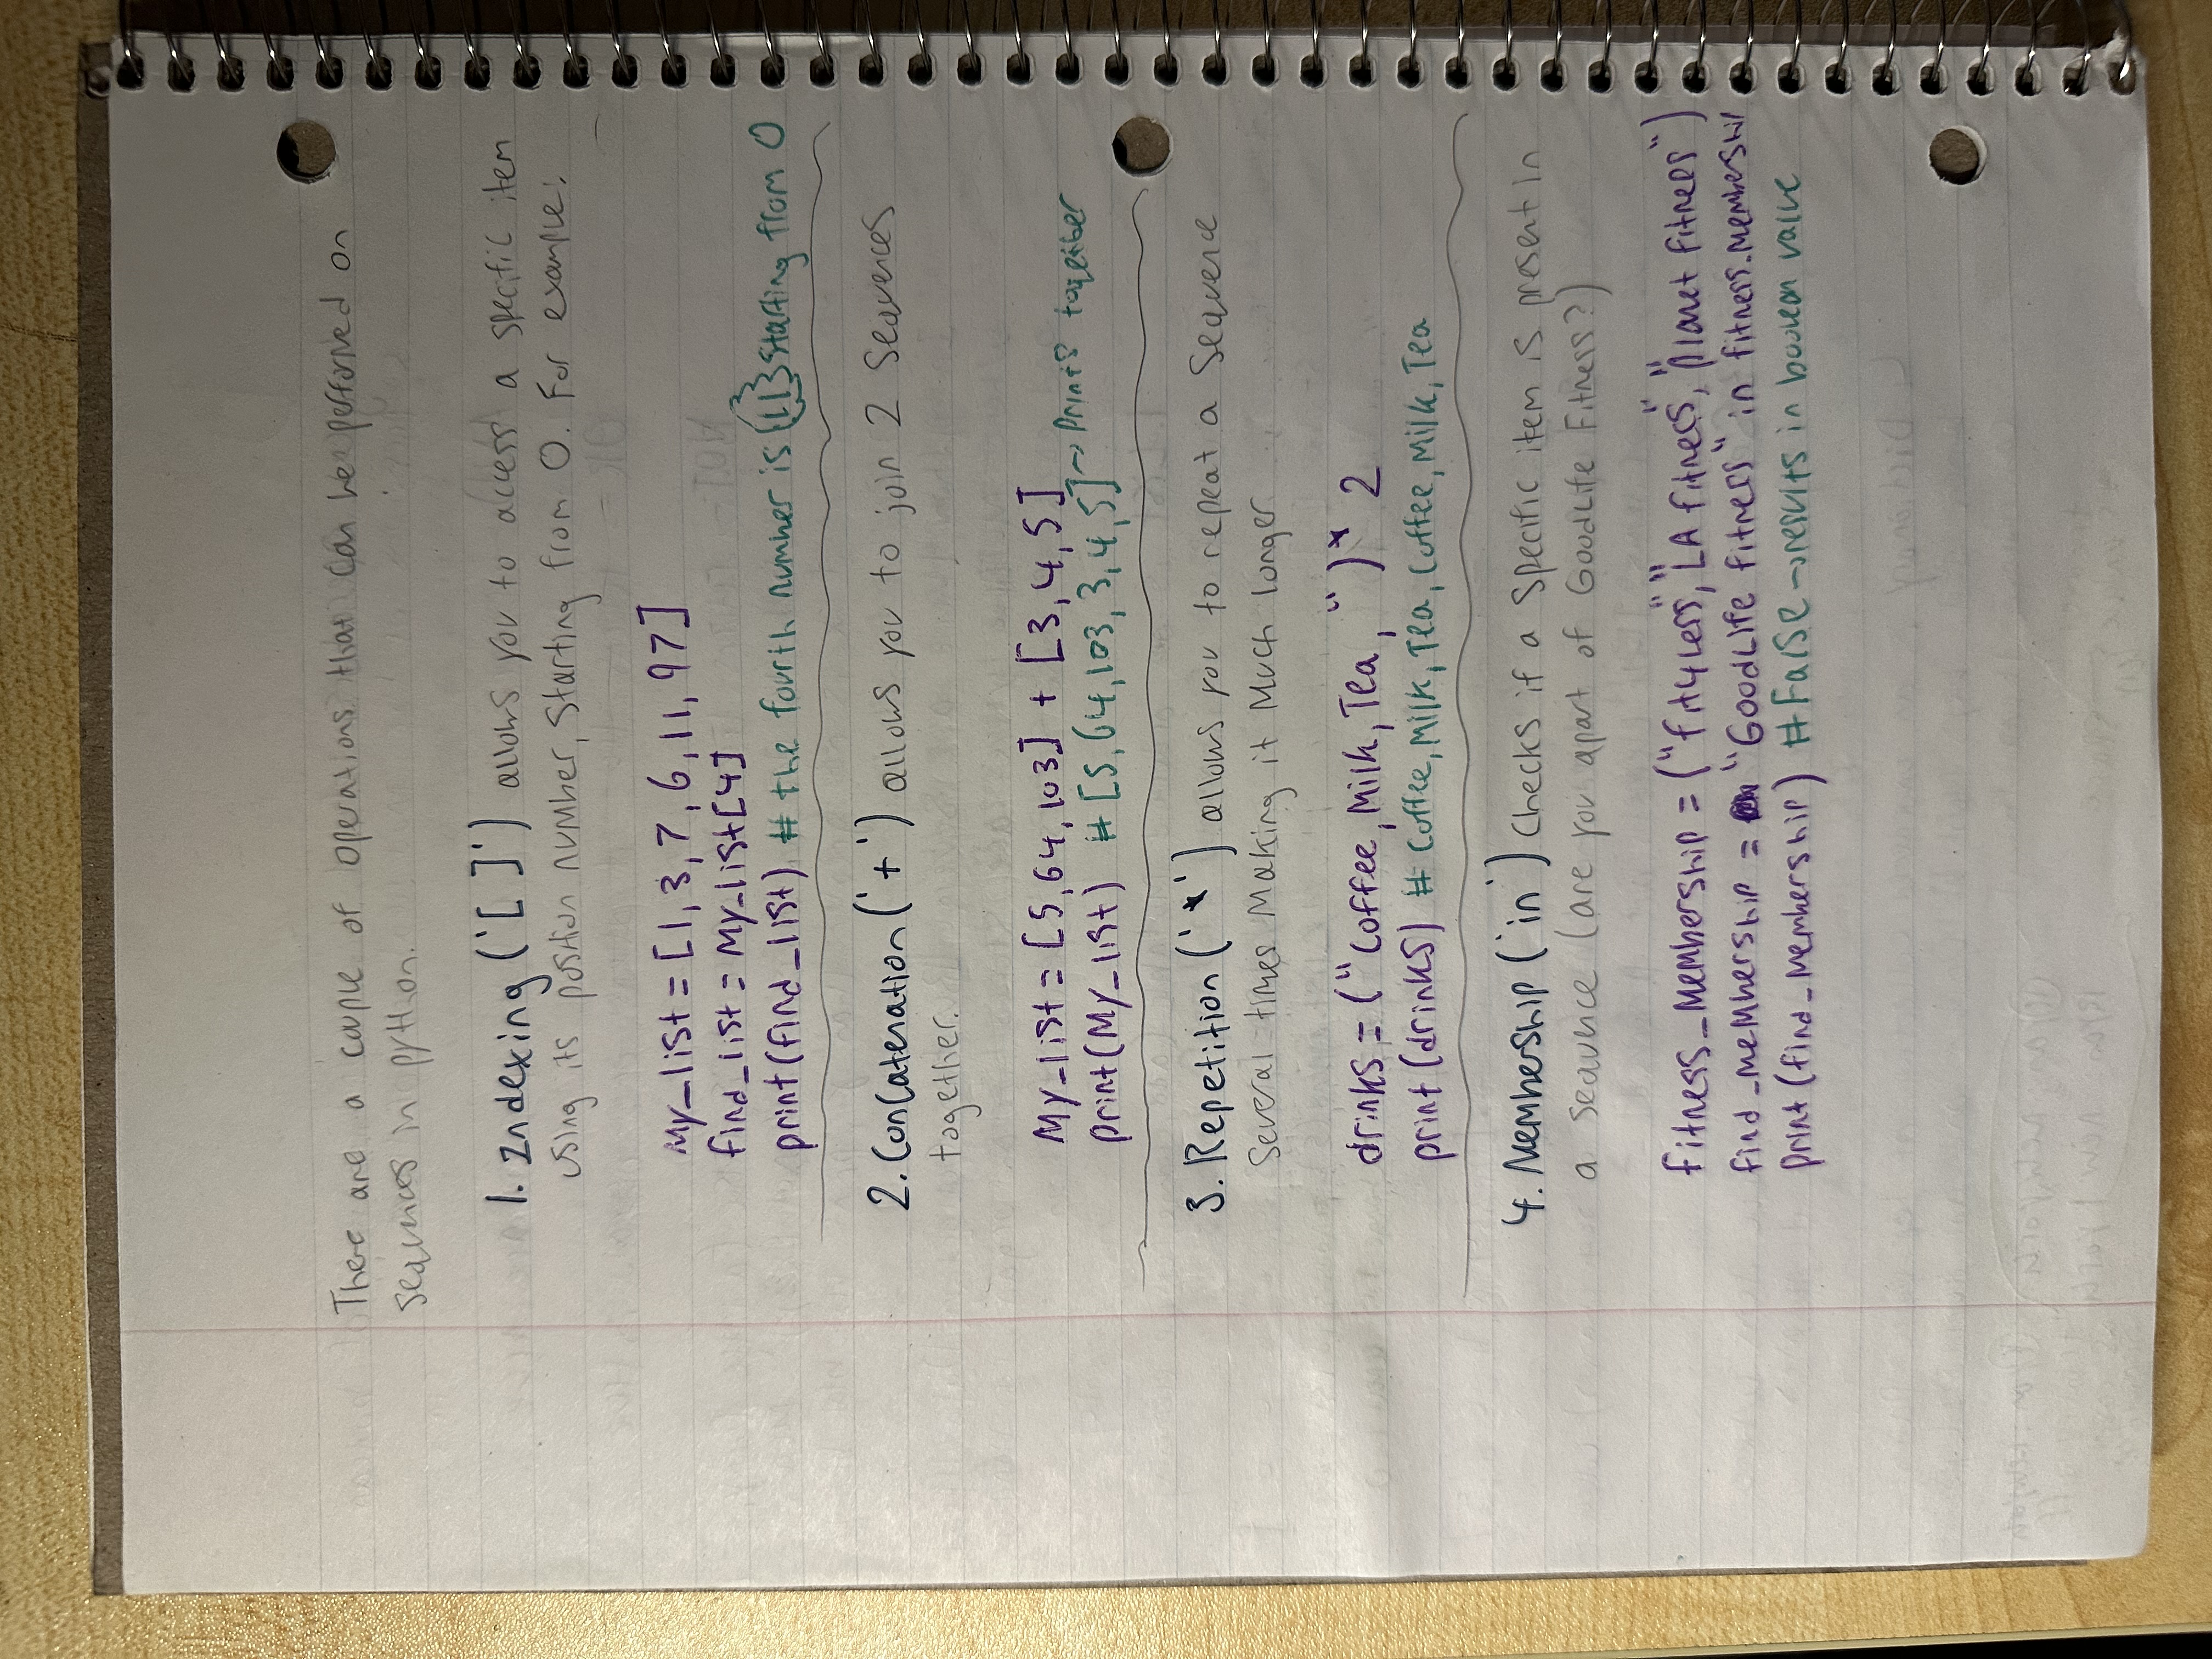 There are a couple of operations that can be performed on
sequences in python.
1. Indexing ('[ ]') allows you to access a specific item
using its position number, starting from 0. For example:
My_list = [1, 3, 7, 6, 11, 97]
find_list = My_list[4]
print(find_list) # the fourth number is {11} starting from 0
2. Concatenation ('+') allows you to join 2 sequences
together.
My_list = [5, 64, 103] + [3, 4, 5]
print(My_list) # [5, 64, 103, 3, 4, 5] → prints together
3. Repetition ('*') allows you to repeat a sequence
several times making it much longer.
drinks = ("Coffee, Milk, Tea, ")* 2
print (drinks) # Coffee, Milk, Tea, Coffee, Milk, Tea
4. Membership ('in') checks if a specific item is present in
a sequence (are you apart of GoodLife Fitness?)
fitness_membership = ("fit4less", "LA fitness", "planet fitness")
find_membership = "GoodLife fitness" in fitness_membership
print (find_membership) # False → results in boolean value